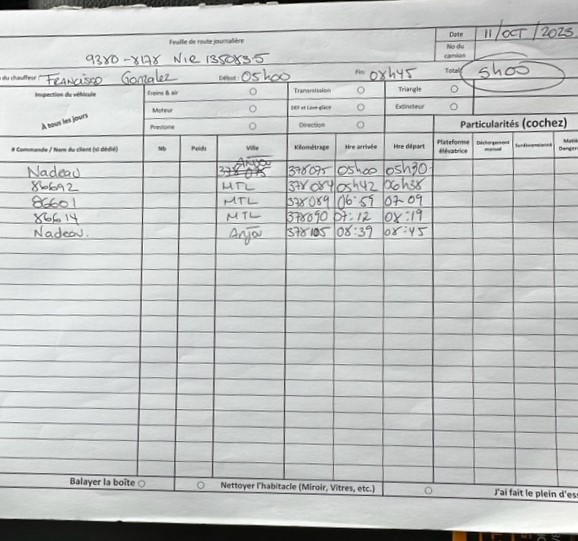 Feuille de route journalière
Date 11/OCT/2025
9380-8178 Nir 135083-5
No du camion
du chauffeur: Francisco Gonzalez Début: 05h00 Fin: 08h45 Total 5h00
Inspection du véhicule
À tous les jours
Freins & air Transmission Triangle
Moteur DEF et Lave-glace Extincteur
Prestone Direction
Particularités (cochez)
# Commande / Nom du client (si dédié) Nb Poids Ville Kilométrage Hre arrivée Hre départ Plateforme élévatrice Déchargement manuel Surdimensionné
Nadeau Anjou 378075 378075 05h00 05h30
86692 MTL 378084 05h42 06h38
86601 MTL 378089 06:59 07-09
86614 MTL 378090 07:12 08:19
Nadeau. Anjou 378105 08:39 08:45
Balayer la boîte Nettoyer l'habitacle (Miroir, Vitres, etc.) J'ai fait le plein d'es